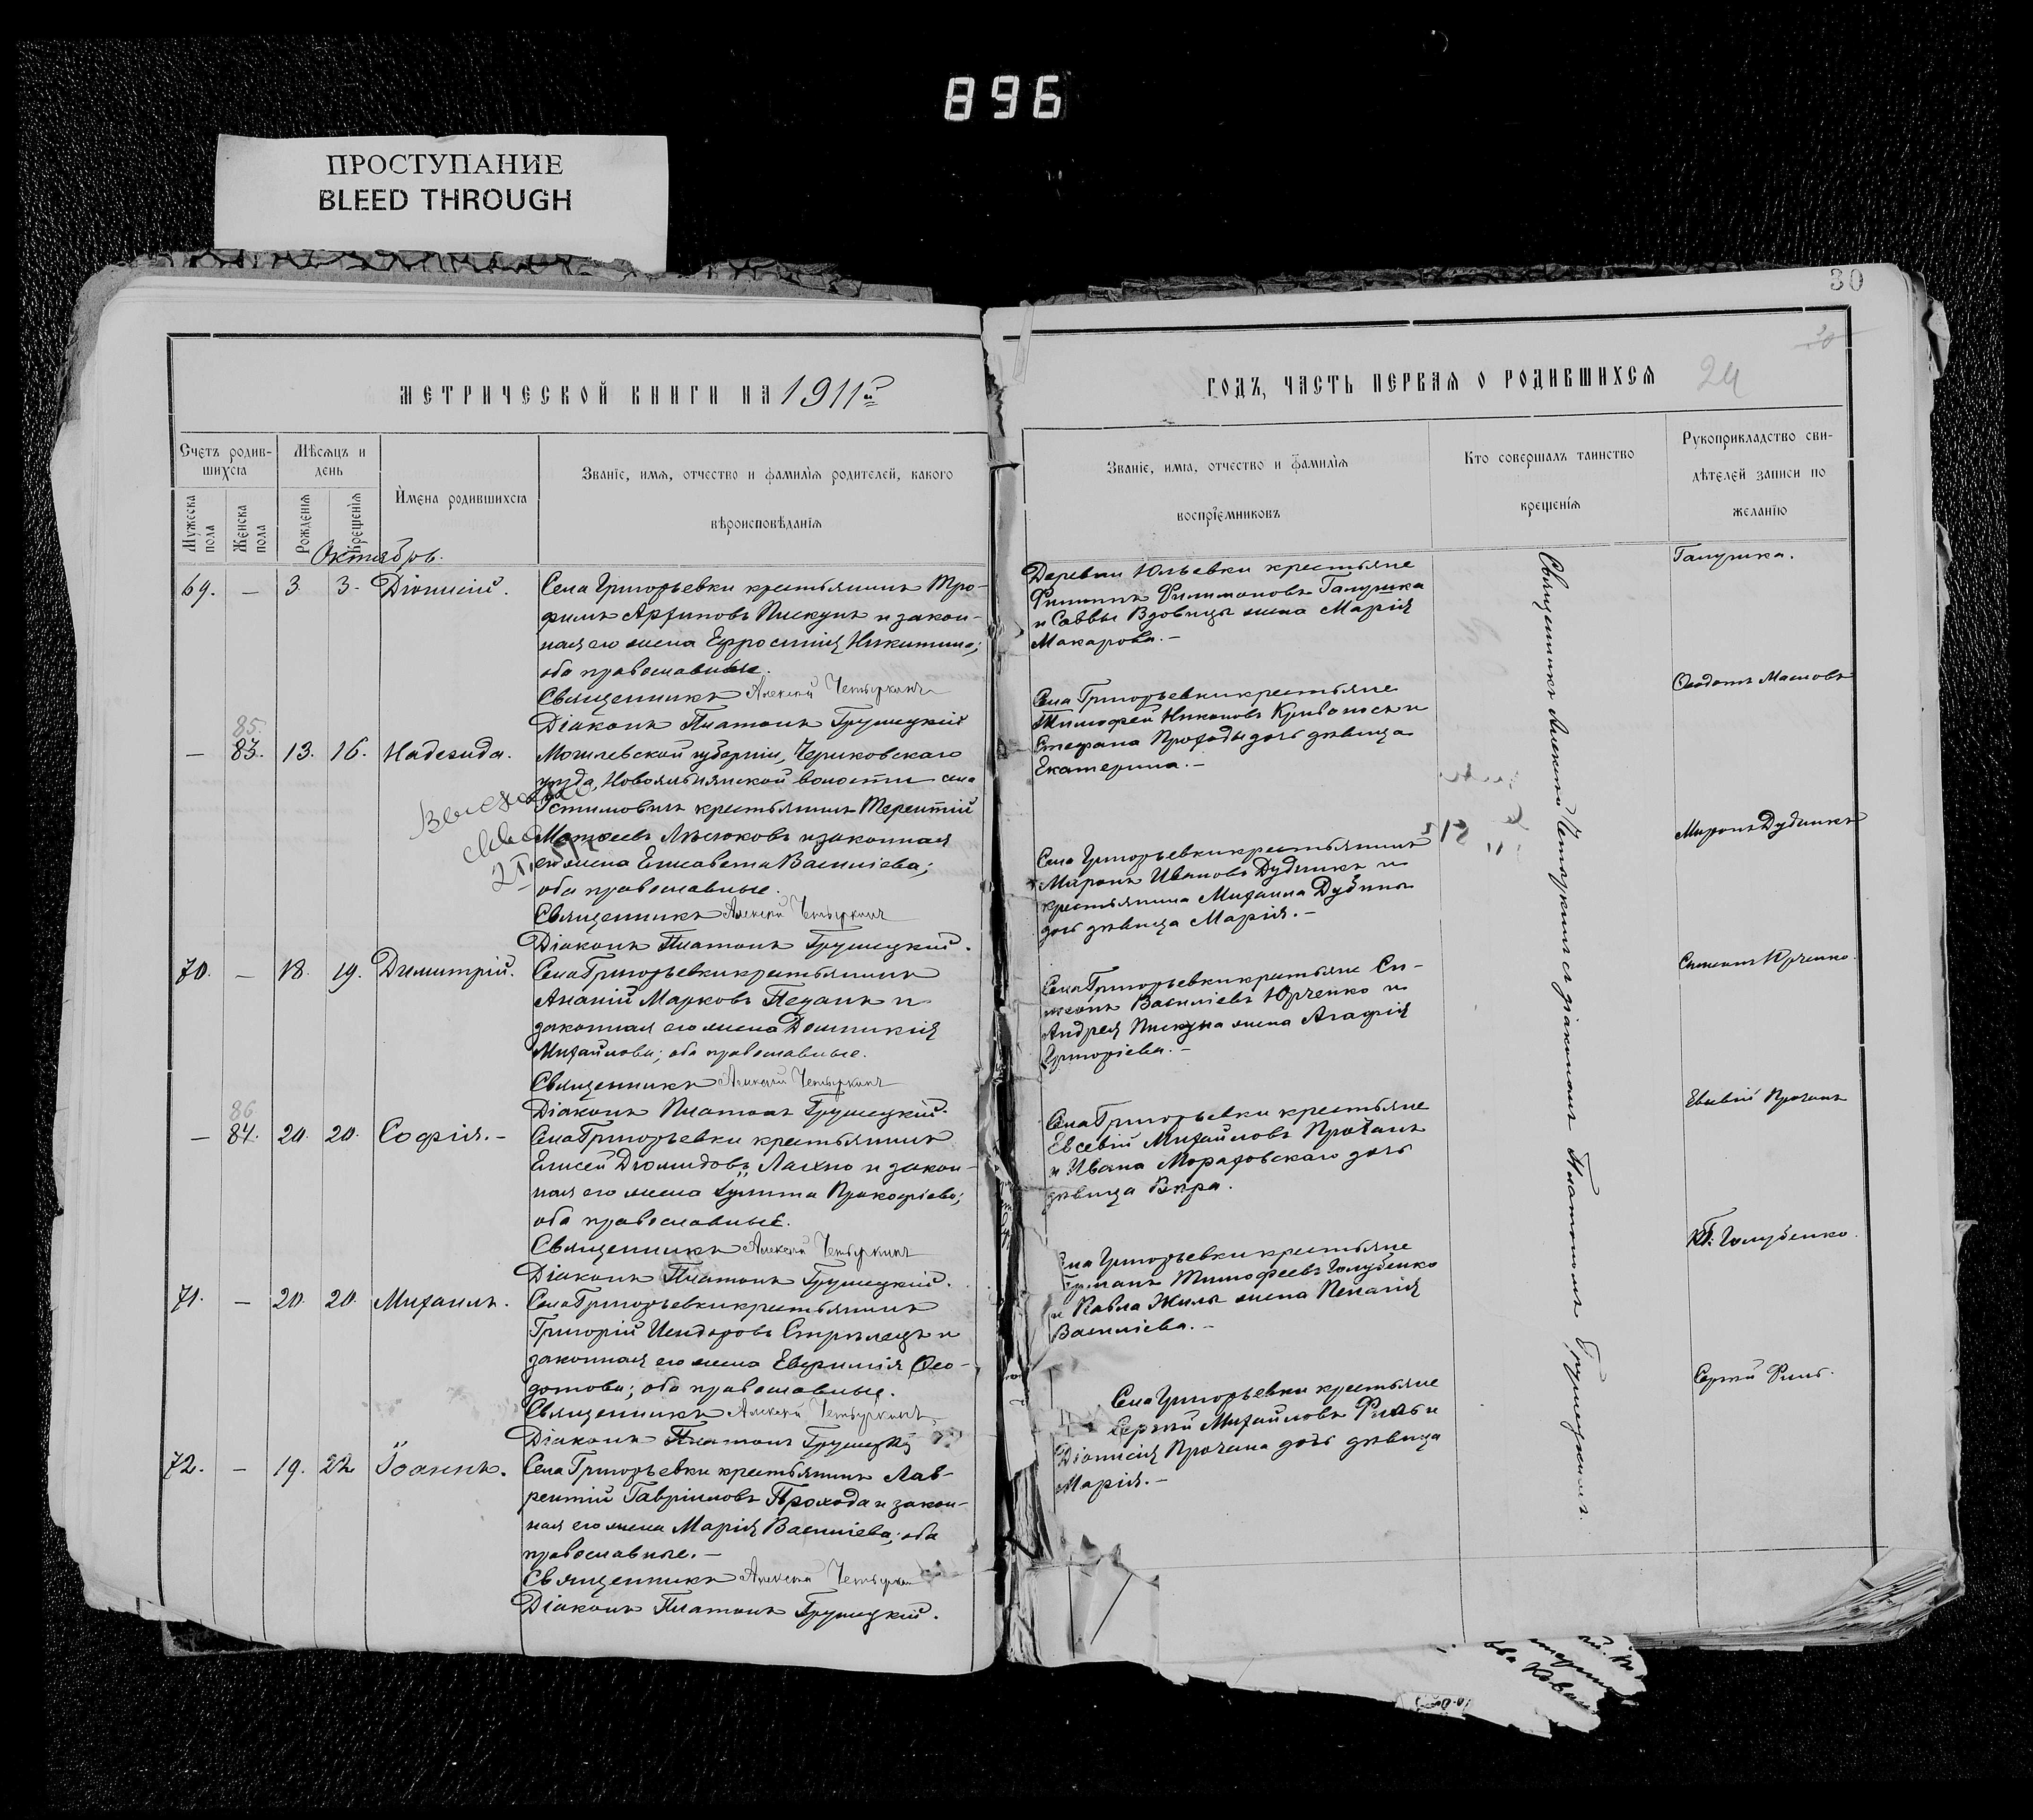 896
ПРОСТУПАНИЕ
BLEED THROUGH
30
МЕТРИЧЕСКОЙ КНИГИ НА 1911й
ГОДЪ, ЧАСТЬ ПЕРВАЯ О РОДИВШИХСЯ
24
Счетъ родив-
шихся
Мѣсяцъ и
день
Имена родившихся
Званіе, имя, отчество и фамилія родителей, какого
вѣроисповѣданія
Мужеска
пола
Женска
пола
Рожденія
Крещенія
Званіе, имя, отчество и фамилія
воспріемниковъ
Кто совершалъ таинство
крещенія
Рукоприкладство сви-
дѣтелей записи по
желанію
Октябрь.
69. — 3. 3. Діонисій.
Села Григорьевки крестьянинъ Тро-
фимъ Пискунъ и закон-
ная его жена Ефросинія Никитина;
оба православные.
Священникъ Алексѣй Четыркинъ
Діаконъ Платонъ Грушецкій
Деревни Юльевки крестьяне
Филимоновъ Галушка
и Саввы Вдовицы жена Марія
Макарова.—
Галушка.
85.
— 83. 13. 16. Надежда.
Могилевской губерніи, Чериковскаго
уѣзда, волости села
крестьянинъ Терентій
и законная
его жена Елисавета Василіева;
оба православные.
Священникъ Алексѣй Четыркинъ
Діаконъ Платонъ Грушецкій.
Села Григорьевки крестьяне
Тимофей Никоновъ Кривоносъ и
Стефана Проходы дочь дѣвица
Екатерина.—
70. — 18. 19. Димитрій.
Села Григорьевки крестьянинъ
Ананій Марковъ и
законная его жена Домникія
Михайлова; оба православные.
Священникъ Алексѣй Четыркинъ
Діаконъ Платонъ Грушецкій.
Села Григорьевки крестьянинъ
Миронъ Ивановъ Дудникъ и
крестьянина Михаила
дочь дѣвица Марія.—
Миронъ Дудникъ
86
— 84. 20. 20. Софія.—
Села Григорьевки крестьянинъ
Елисей Діомидовъ и закон-
ная его жена Прокофіева;
оба православные.
Священникъ Алексѣй Четыркинъ
Діаконъ Платонъ Грушецкій.
Села Григорьевки крестьяне Си-
меонъ Василіевъ Юрченко и
Андрея Пискуна жена Агафія
Григоріева.—
Симеонъ Юрченко.
71. — 20. 20. Михаилъ.
Села Григорьевки крестьянинъ
Григорій Исидоровъ Стрѣлецъ и
законная его жена Евфимія Ѳео-
дотова; оба православные.
Священникъ Алексѣй Четыркинъ
Діаконъ Платонъ Грушецкій
Села Григорьевки крестьяне
Евсевій Михайловъ Проханъ
и Ивана дочь
дѣвица Вѣра.
Евсевій Проханъ
72. — 19. 22. Іоаннъ.
Села Григорьевки крестьянинъ Лав-
рентій Гавріиловъ Прохода и закон-
ная его жена Марія Василіева; оба
православные.—
Священникъ Алексѣй Четыркинъ
Діаконъ Платонъ Грушецкій.
Села Григорьевки крестьяне
Тимофеевъ Голубенко
и Павла Жилы жена Пелагія
Василіева.—
Голубенко.
Села Григорьевки крестьяне
Сергѣй Михайловъ и
Діонисія Прохана дочь дѣвица
Марія.—
Священникъ Алексѣй Четыркинъ съ діакономъ Платономъ Грушецкимъ.